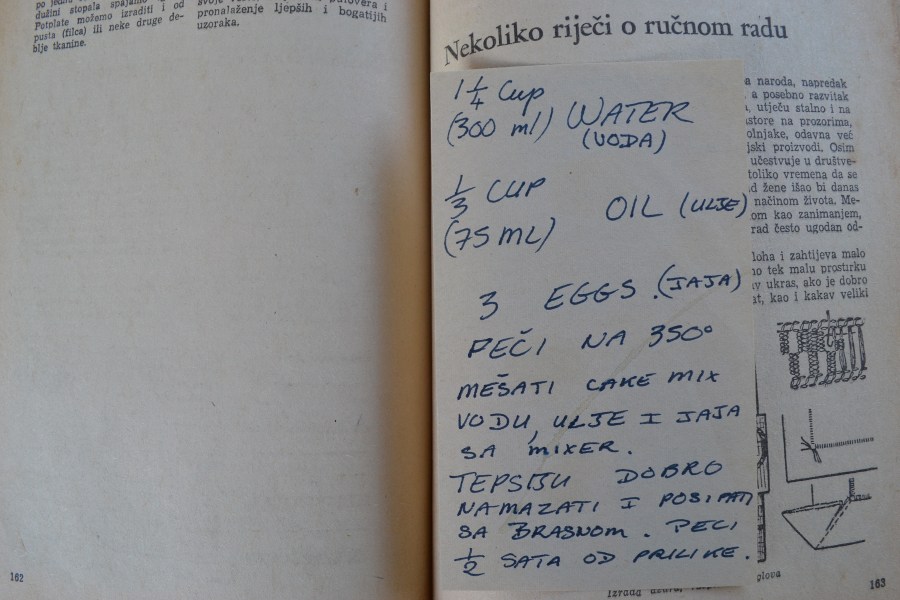 dužini stopala spajamo
Potplate možemo izraditi i od
pusta (filca) ili neke druge de-
blje tkanine.
pronalaženje ljepših i bogatijih
uzoraka.
162
Nekoliko riječi o ručnom radu
1 1/4 Cup
(300 ml) WATER
(VODA)
1/3 CUP
(75 ML) OIL (ULJE)
3 EGGS (JAJA)
PEČI NA 350°
MEŠATI CAKE MIX
VODU, ULJE I JAJA
SA MIXER.
TEPSIJU DOBRO
NAMAZATI I POSIPATI
SA BRASNOM. PECI
1/2 SATA OD PRILIKE.
naroda, napredak
a posebno razvitak
utječu stalno i na
na prozorima,
odavna već
proizvodi. Osim
učestvuje u društve-
toliko vremena da se
žene išao bi danas
načinom života. Me-
kao zanimanjem,
rad često ugodan od-
i zahtijeva malo
tek malu prostirku
ukras, ako je dobro
kao i kakav veliki
163